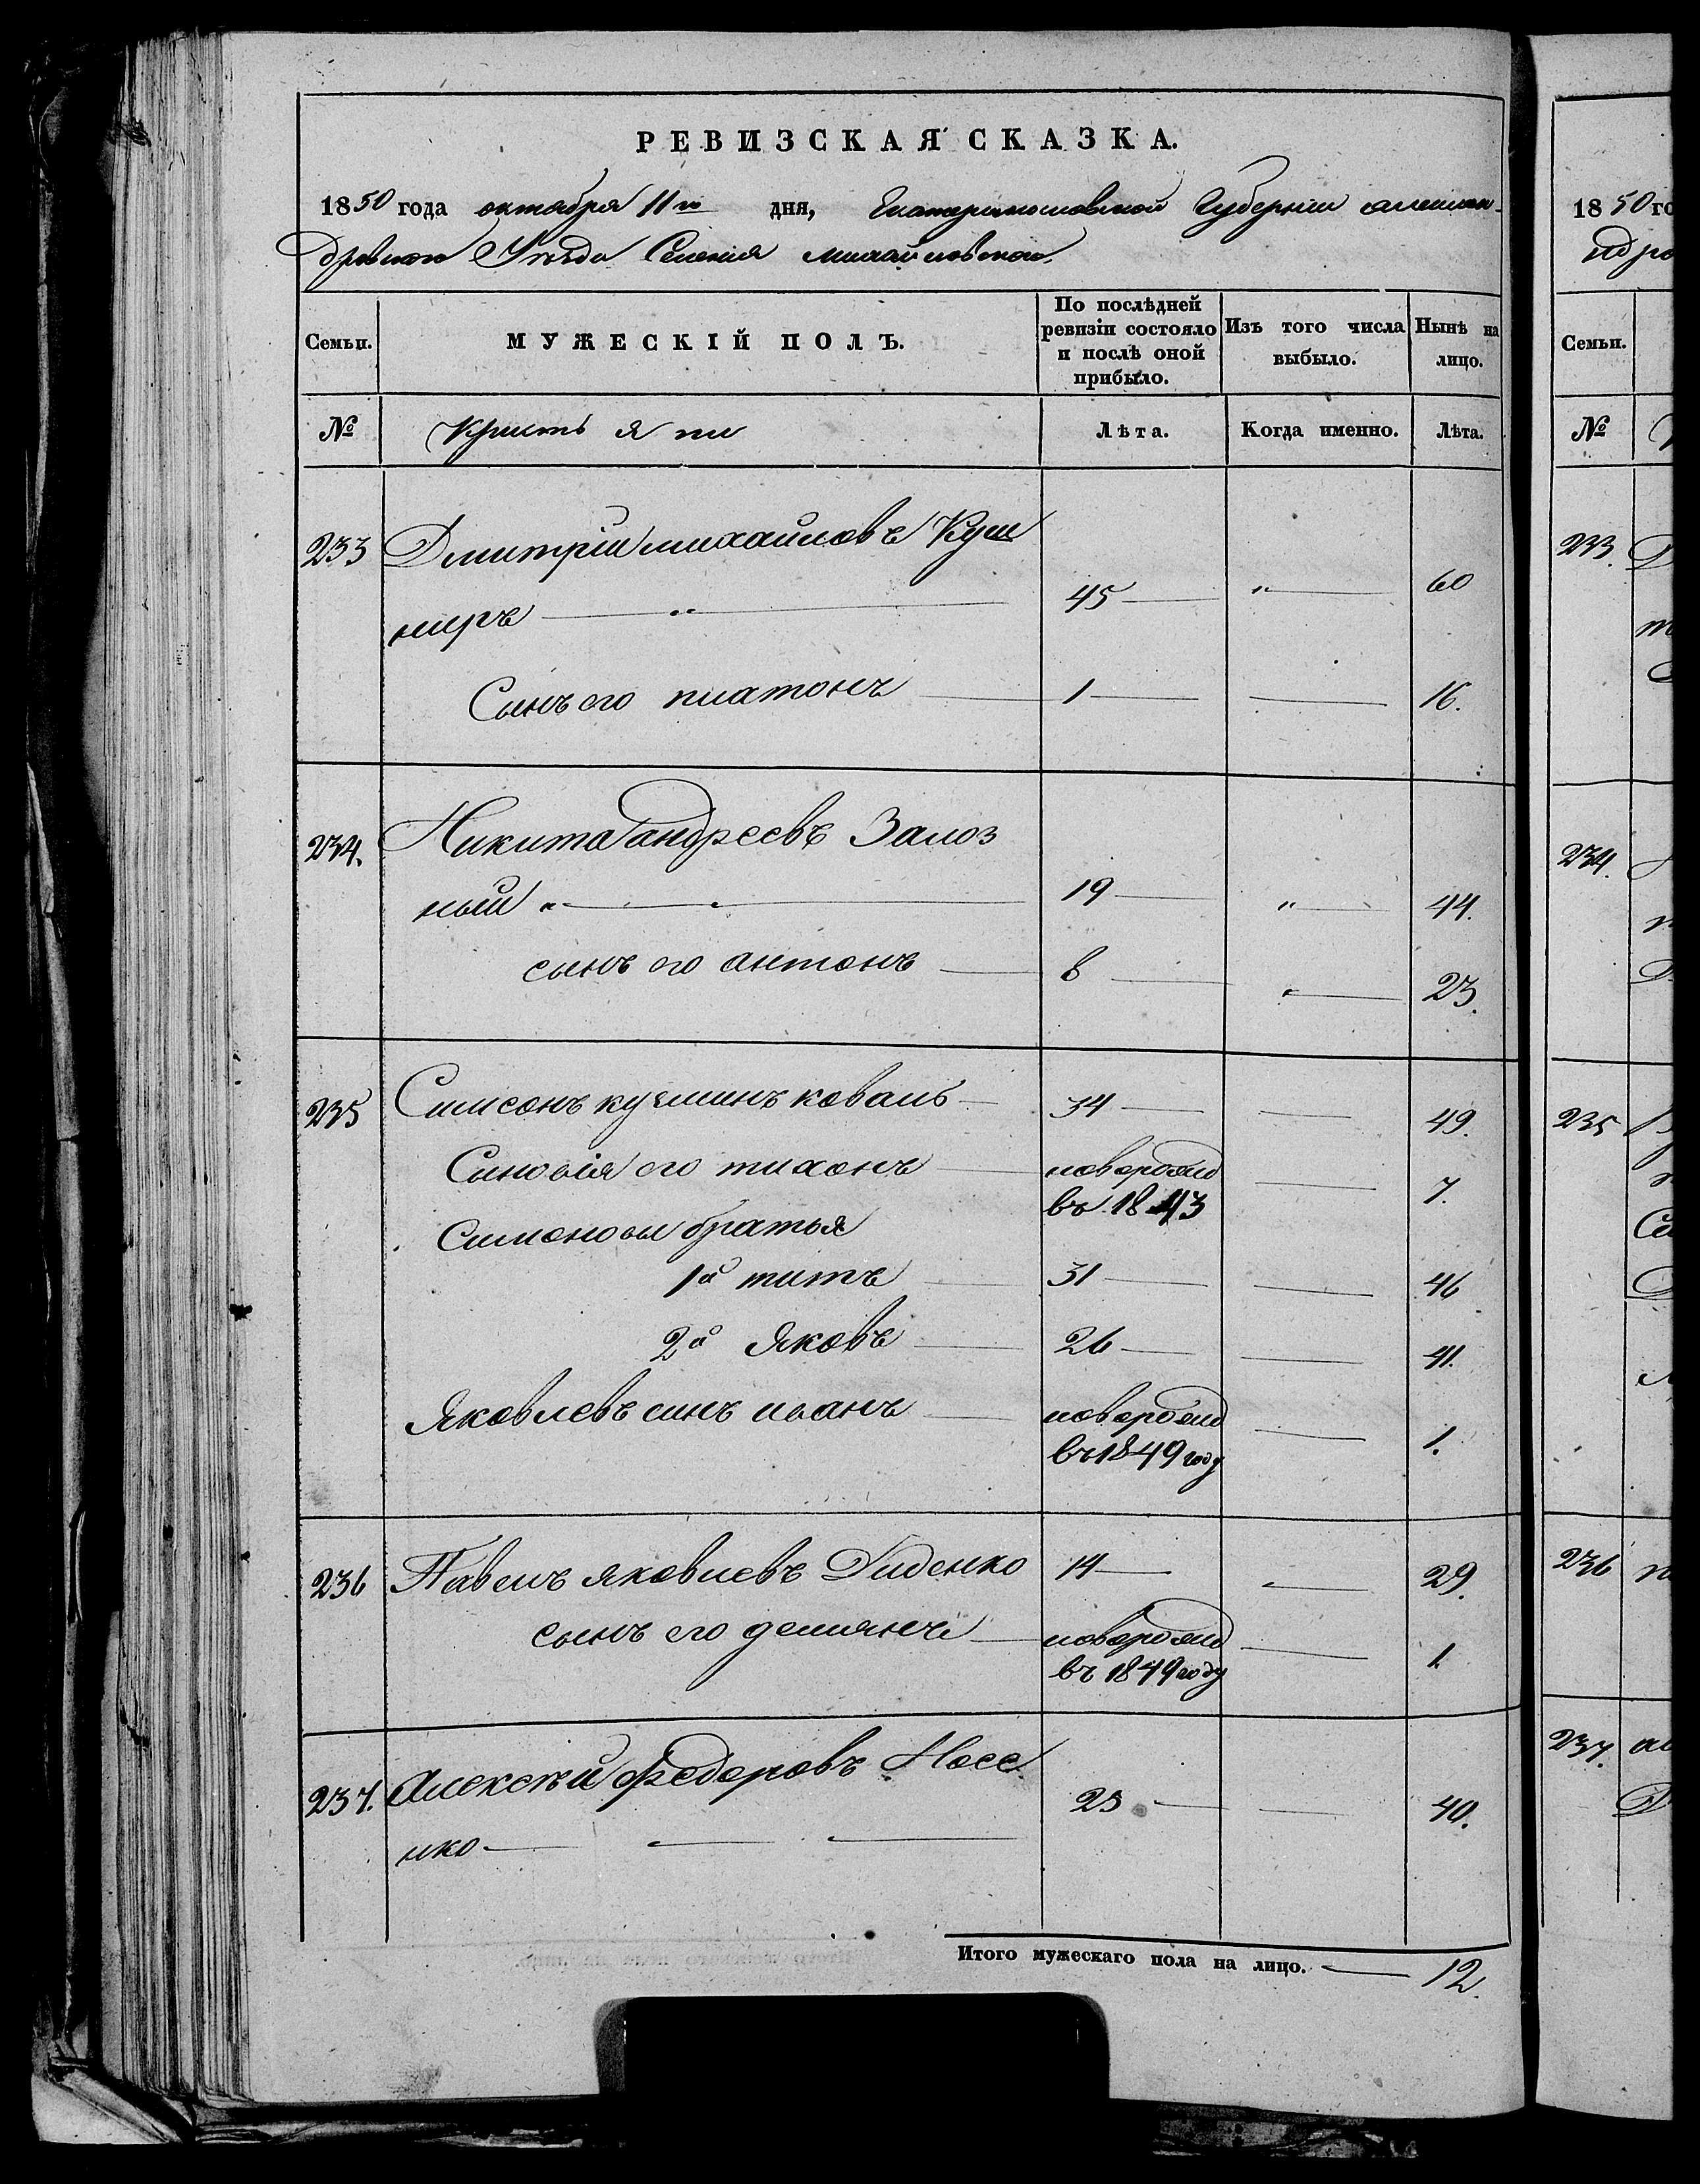 РЕВИЗСКАЯ СКАЗКА.
1850 года октября 11го дня, Екатеринославской Губернiи алексан-
дровского Уѣзда Селенiя михайловского.
Семьи. МУЖЕСКІЙ ПОЛЪ. По послѣдней ревизіи состояло и послѣ оной прибыло. Изъ того числа выбыло. Нынѣ на лицо.
№ Кристьяни Лѣта. Когда именно. Лѣта.
233 Дмитрій михайловъ Куш
ниръ 45 " 60
Сынъ его платонъ 1 16.
234. Никита андреевъ Залоз
ный 19 " 44.
сынъ его антонъ 8 " 23.
235 Симеонъ кузминъ коваль 34 49.
Синовія его тихонъ новорожд
въ 1843 7.
Симоновы братья
1й титъ 31 46
2й Яковъ 26 41.
Яковлевъ синъ иванъ новорожд
въ 1849 году 1.
236 Павелъ яковлевъ Диденко 14 29.
сынъ его демянъ новорожд
въ 1849 году 1.
237. Алексѣй Федоровъ Носе
нко 25 40.
Итого мужескаго пола на лицо. 12.
1850 го
ндро
Семьи.
№
233.
234.
235
236
237.